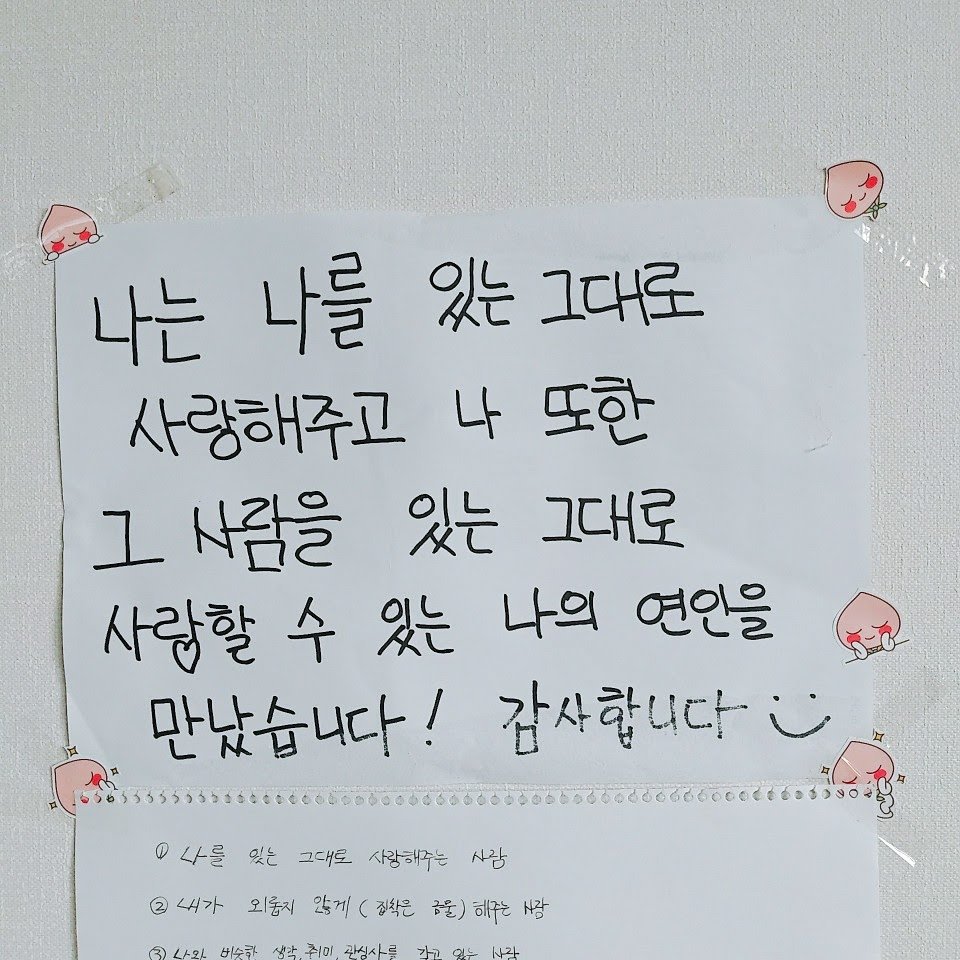 나는 나를 있는 그대로
사랑해주고 나 또한
그 사람을 있는 그대로
사랑할 수 있는 나의 연인을
만났습니다! 감사합니다 :)
① 나를 있는 그대로 사랑해주는 사람
② 내가 외롭지 않게 (집착은 금물) 해주는 사람
③ 나와 비슷한 생각, 취미, 관심사를 갖고 있는 사람